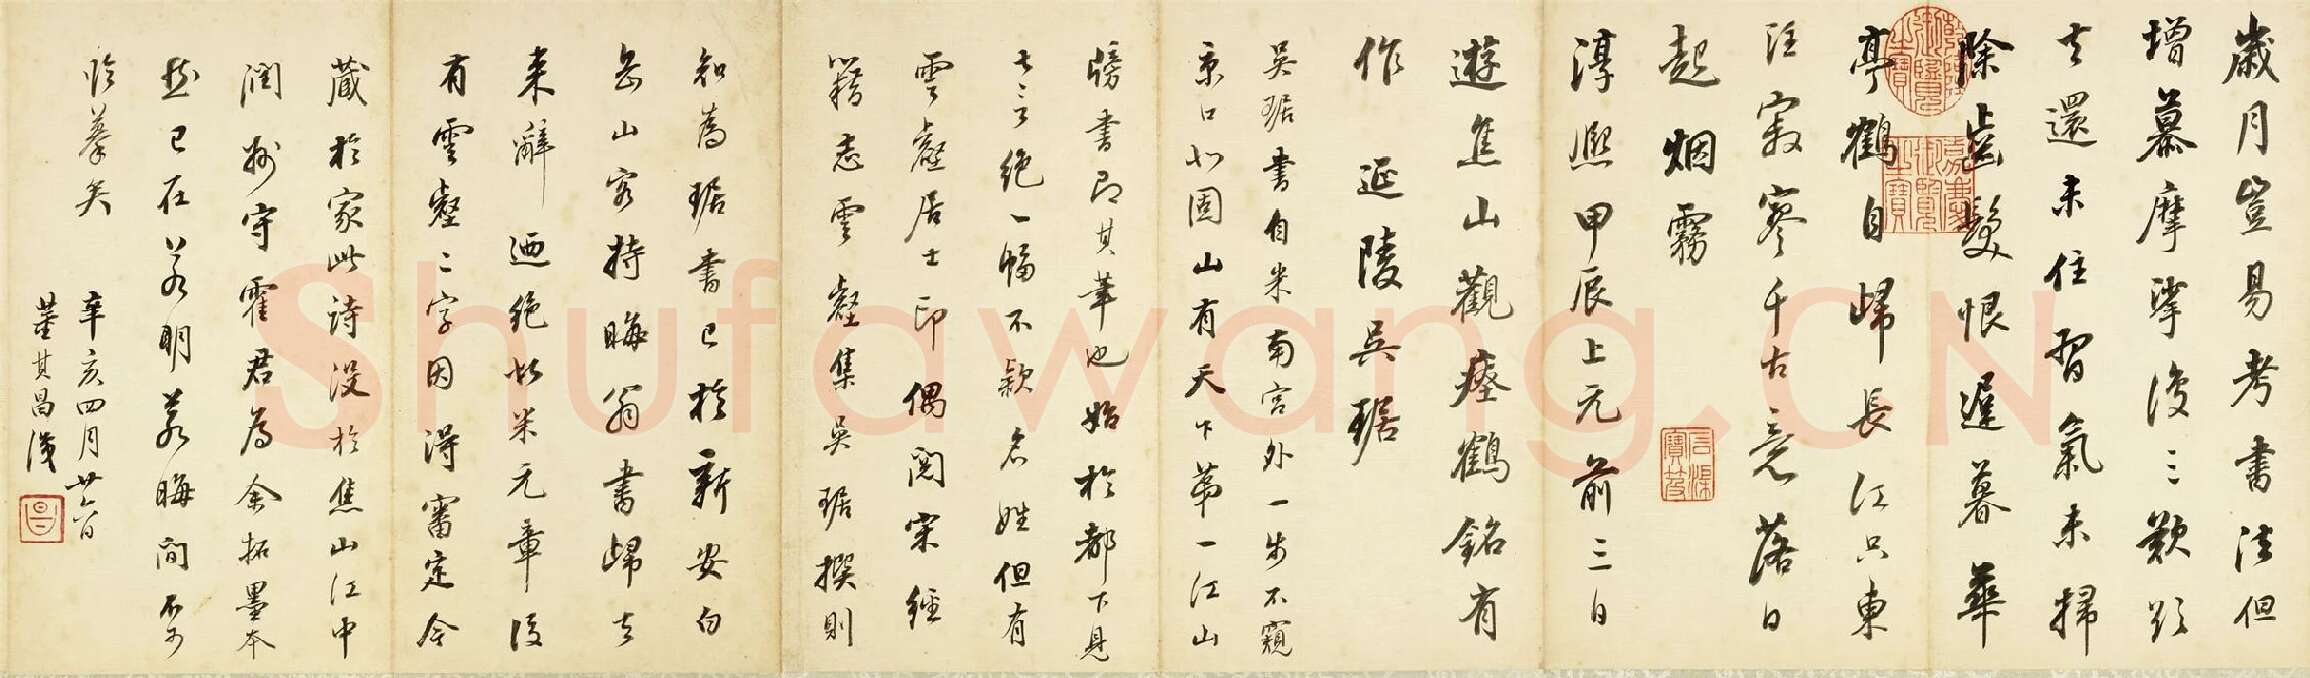 歲月豈易考書法但
增慕摩挲復三歎欲
去還未住習氣未掃
除齒髮恨遲暮華
亭鶴自歸長江只東
注寂寥千古意落日
起烟霧
淳熙甲辰上元前三日
遊焦山觀瘞鶴銘有
作 延陵吳琚
吳琚書自米南宮外一步不窺
京口北固山有天下第一江山
牓書即其筆也始於都下見
七言絶一幅不款名姓但有
雲壑居士印偶閱宋經
籍志雲壑集吳琚撰則
知為琚書已於新安白
岳山客持晦翁書歸去
来辭廼絶似米元章後
有雲壑二字因得審定今
藏於家此詩沒於焦山江中
潤州守霍君為余拓墨本
然已在若明若晦間不
臨摹矣
辛亥四月廿六日
董其昌識
Shufawang.CN